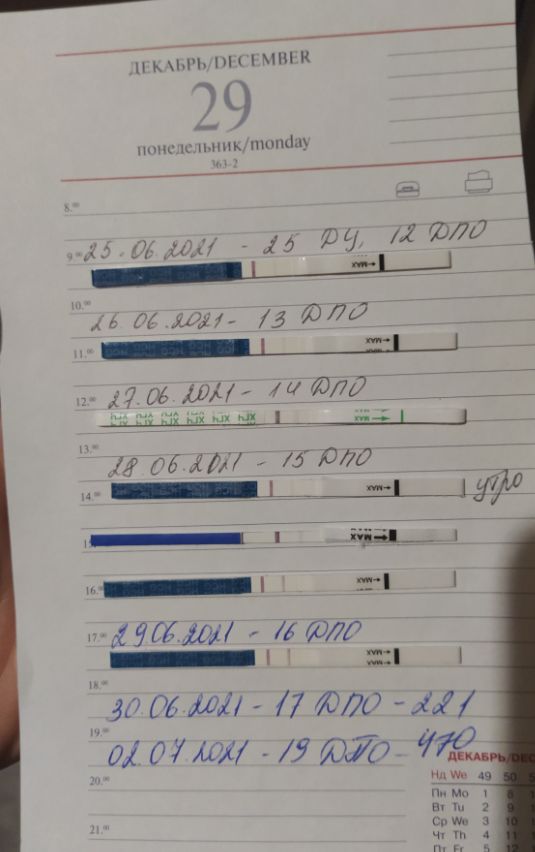 ДЕКАБРЬ/DECEMBER
29
понедельник/monday
363-2
8.00
9.00 25.06.2021 - 25 ДЦ, 12 ДПО
MAX
10.00
26.06.2021 - 13 ДПО
11.00
MAX
12.00 27.06.2021 - 14 ДПО
ХГЧ ХГЧ ХГЧ ХГЧ ХГЧ ХГЧ
MAX
13.00
28.06.2021 - 15 ДПО
14.00
MAX
утро
MAX
16.00
MAX
17.00 29.06.2021 - 16 ДПО
MAX
MAX
18.00
30.06.2021 - 17 ДПО - 221
19.00
02.07.2021 - 19 ДПО - 470
20.00
21.00
ДЕКАБРЬ/DEC
Нд We 49 50
Пн Mo 1 8
Вт Tu 2 9
Ср We 3 10
Чт Th 4 11
Пт Fr 5 12